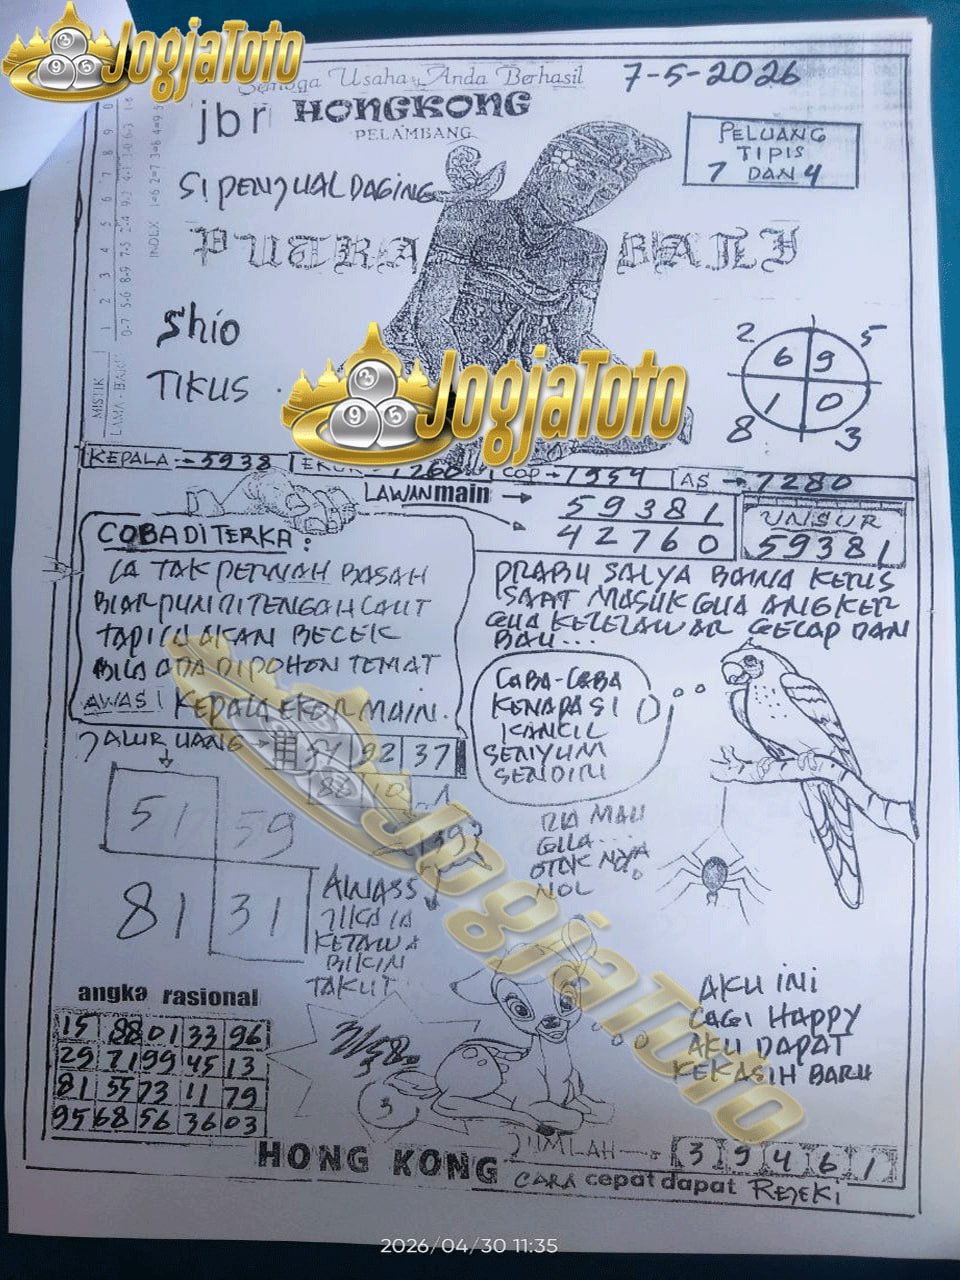 JogjaToto
Semoga Usaha Anda Berhasil
7-5-2026
jbr HONGKONG
PELAMBANG
PELUANG
TIPIS
7 DAN 4
SI PENJUAL DAGING
PUTRA BALI
Shio
TIKUS
INDEX
MISTIK
LAMA - BARU
2 5
6 9
1 0
8 3
JogjaToto
KEPALA → 5938
AS → 7280
LAWAN main → 59381
42760
UNSUR
59381
COBA DITERKA:
IA TAK PERNAH BASAH
BIARPUN DITENGAH LAUT
TAPI IA AKAN BECEK
BILA ADA DIPOHON TEMAT
AWAS! KEPALA EKOR MAIN.
PRABU SALYA BAWA KERIS
SAAT MASUK GUA ANGKER
GUA KELELAWAR GELAP DAN
BAU...
COBA-COBA
KENAPA SI
KANCIL
SENYUM
SENDIRI
JALUR UANG → 92 37
51 59
81 31
DIA MAU
GILA...
OTAK NYA
NOL
AWASS
JIKA IA
KETAWA
BIKIN
TAKUT
JogjaToto
AKU INI
LAGI HAPPY
AKU DAPAT
KEKASIH BARU
angka rasional
15 88 01 33 96
29 71 99 45 13
81 55 73 11 79
95 68 56 36 03
3
HONG KONG
JUMLAH → 3 9 4 6 1
CARA cepat dapat REJEKI
2026/04/30 11:35